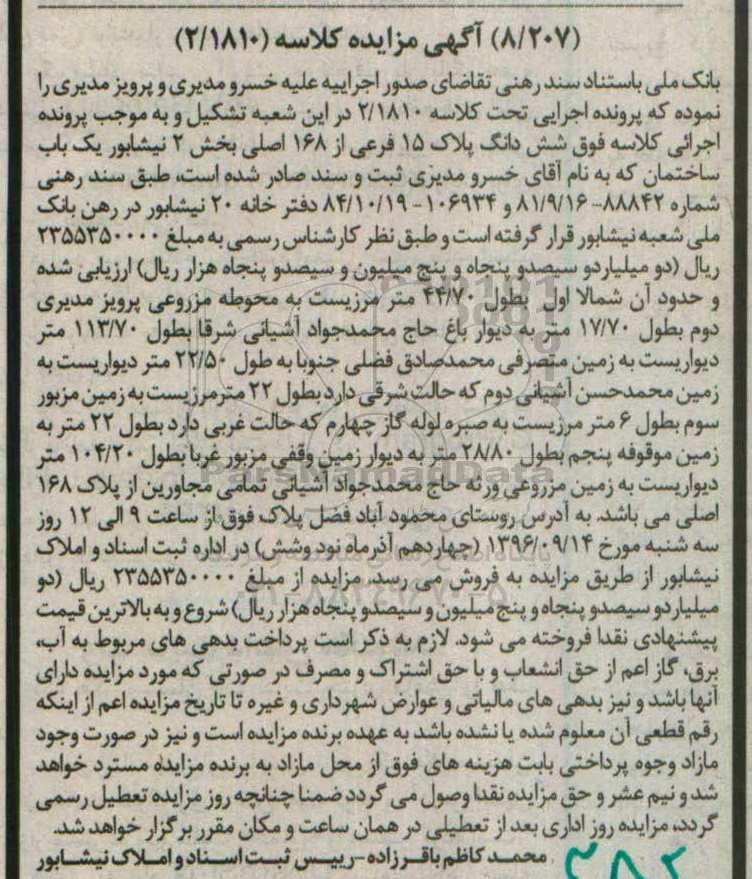 (۸/۲۰۷) آگهی مزایده کلاسه (۲/۱۸۱۰)
بانک ملی باستناد سند رهنی تقاضای صدور اجراییه علیه خسرو مدیری و پرویز مدیری را
نموده که پرونده اجرایی تحت کلاسه ۲/۱۸۱۰ در این شعبه تشکیل و به موجب پرونده
اجرائی کلاسه فوق شش دانگ پلاک ۱۵ فرعی از ۱۶۸ اصلی بخش ۲ نیشابور یک باب
ساختمان که به نام آقای خسرو مدیری ثبت و سند صادر شده است، طبق سند رهنی
شماره ۸۸۸۴۲- ۸۱/۹/۱۶ و ۱۰۶۹۳۴- ۸۴/۱۰/۱۹ دفتر خانه ۲۰ نیشابور در رهن بانک
ملی شعبه نیشابور قرار گرفته است و طبق نظر کارشناس رسمی به مبلغ ۲۳۵۵۳۵۰۰۰۰
ریال (دو میلیاردو سیصدو پنجاه و پنج میلیون و سیصدو پنجاه هزار ریال) ارزیابی شده
و حدود آن شمالا اول بطول ۴۴/۷۰ متر مرزیست به محوطه مزروعی پرویز مدیری
دوم بطول ۱۷/۷۰ متر به دیوار باغ حاج محمدجواد آشیانی شرقا بطول ۱۱۳/۷۰ متر
دیواریست به زمین متصرفی محمدصادق فضلی جنوبا به طول ۲۲/۵۰ متر دیواریست به
زمین محمدحسن آشیانی دوم که حالت شرقی دارد بطول ۲۲ مترمرزیست به زمین مزبور
سوم بطول ۶ متر مرزیست به صبره لوله گاز چهارم که حالت غربی دارد بطول ۲۲ متر به
زمین موقوفه پنجم بطول ۲۸/۸۰ متر به دیوار زمین وقفی مزبور غربا بطول ۱۰۴/۲۰ متر
دیواریست به زمین مزروعی ورثه حاج محمدجواد آشیانی تمامی مجاورین از پلاک ۱۶۸
اصلی می باشد. به آدرس روستای محمود آباد فضل پلاک فوق از ساعت ۹ الی ۱۲ روز
سه شنبه مورخ ۱۳۹۶/۰۹/۱۴ (چهاردهم آذرماه نود وشش) در اداره ثبت اسناد و املاک
نیشابور از طریق مزایده به فروش می رسد. مزایده از مبلغ ۲۳۵۵۳۵۰۰۰۰ ریال (دو
میلیاردو سیصدو پنجاه و پنج میلیون و سیصدو پنجاه هزار ریال) شروع و به بالاترین قیمت
پیشنهادی نقدا فروخته می شود. لازم به ذکر است پرداخت بدهی های مربوط به آب،
برق، گاز اعم از حق انشعاب و یا حق اشتراک و مصرف در صورتی که مورد مزایده دارای
آنها باشد و نیز بدهی های مالیاتی و عوارض شهرداری و غیره تا تاریخ مزایده اعم از اینکه
رقم قطعی آن معلوم شده یا نشده باشد به عهده برنده مزایده است و نیز در صورت وجود
مازاد وجوه پرداختی بابت هزینه های فوق از محل مازاد به برنده مزایده مسترد خواهد
شد و نیم عشر و حق مزایده نقدا وصول می گردد ضمنا چنانچه روز مزایده تعطیل رسمی
گردد، مزایده روز اداری بعد از تعطیلی در همان ساعت و مکان مقرر برگزار خواهد شد.
محمد کاظم باقرزاده -رییس ثبت اسناد و املاک نیشابور
ParsNamadData